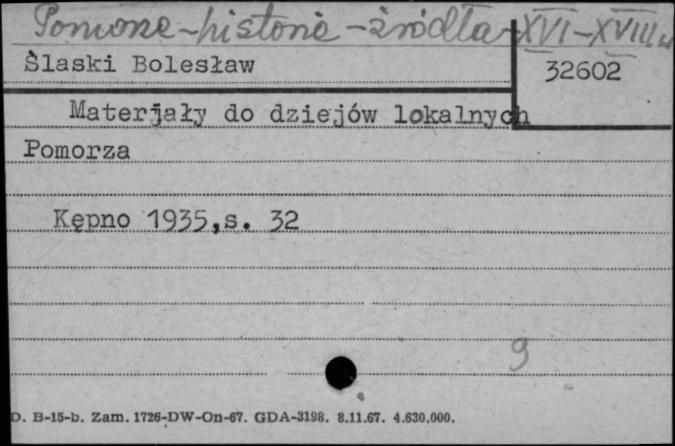 Pomorze-historie-źródła-XVI-XVIII w
Ślaski Bolesław
32602
Materjały do dziejów lokalnych
Pomorza
Kępno 1935,s. 32
9
D. B-15-b. Zam. 1726-DW-On-67. GDA-3198. 8.11.67. 4.630.000.